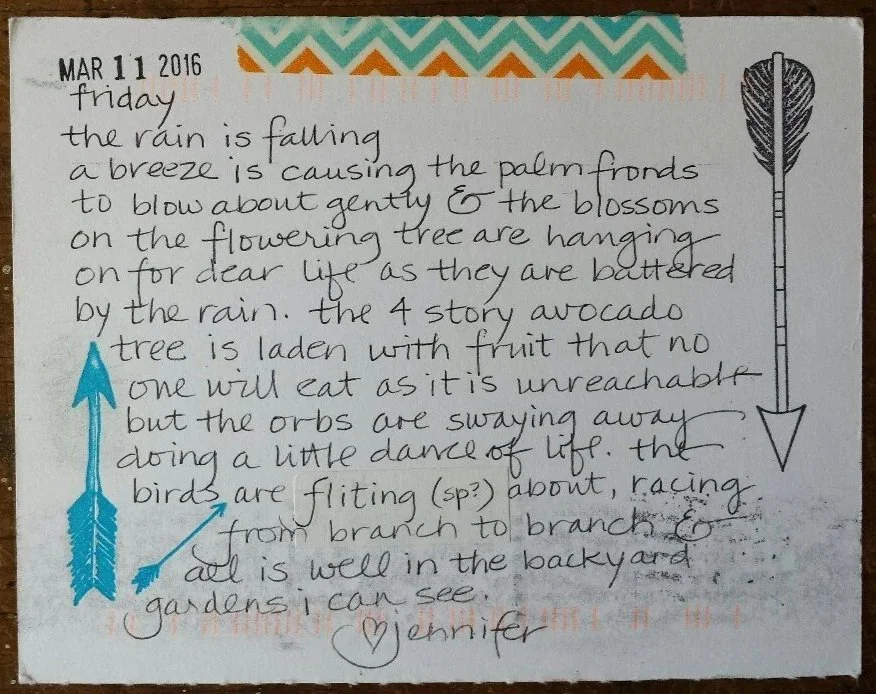 MAR 11 2016
friday
the rain is falling
a breeze is causing the palm fronds
to blow about gently & the blossoms
on the flowering tree are hanging
on for dear life as they are battered
by the rain. the 4 story avocado
tree is laden with fruit that no
one will eat as it is unreachable
but the orbs are swaying away
doing a little dance of life. the
birds are fliting (sp?) about, racing
from branch to branch &
all is well in the backyard
gardens i can see.
♡jennifer